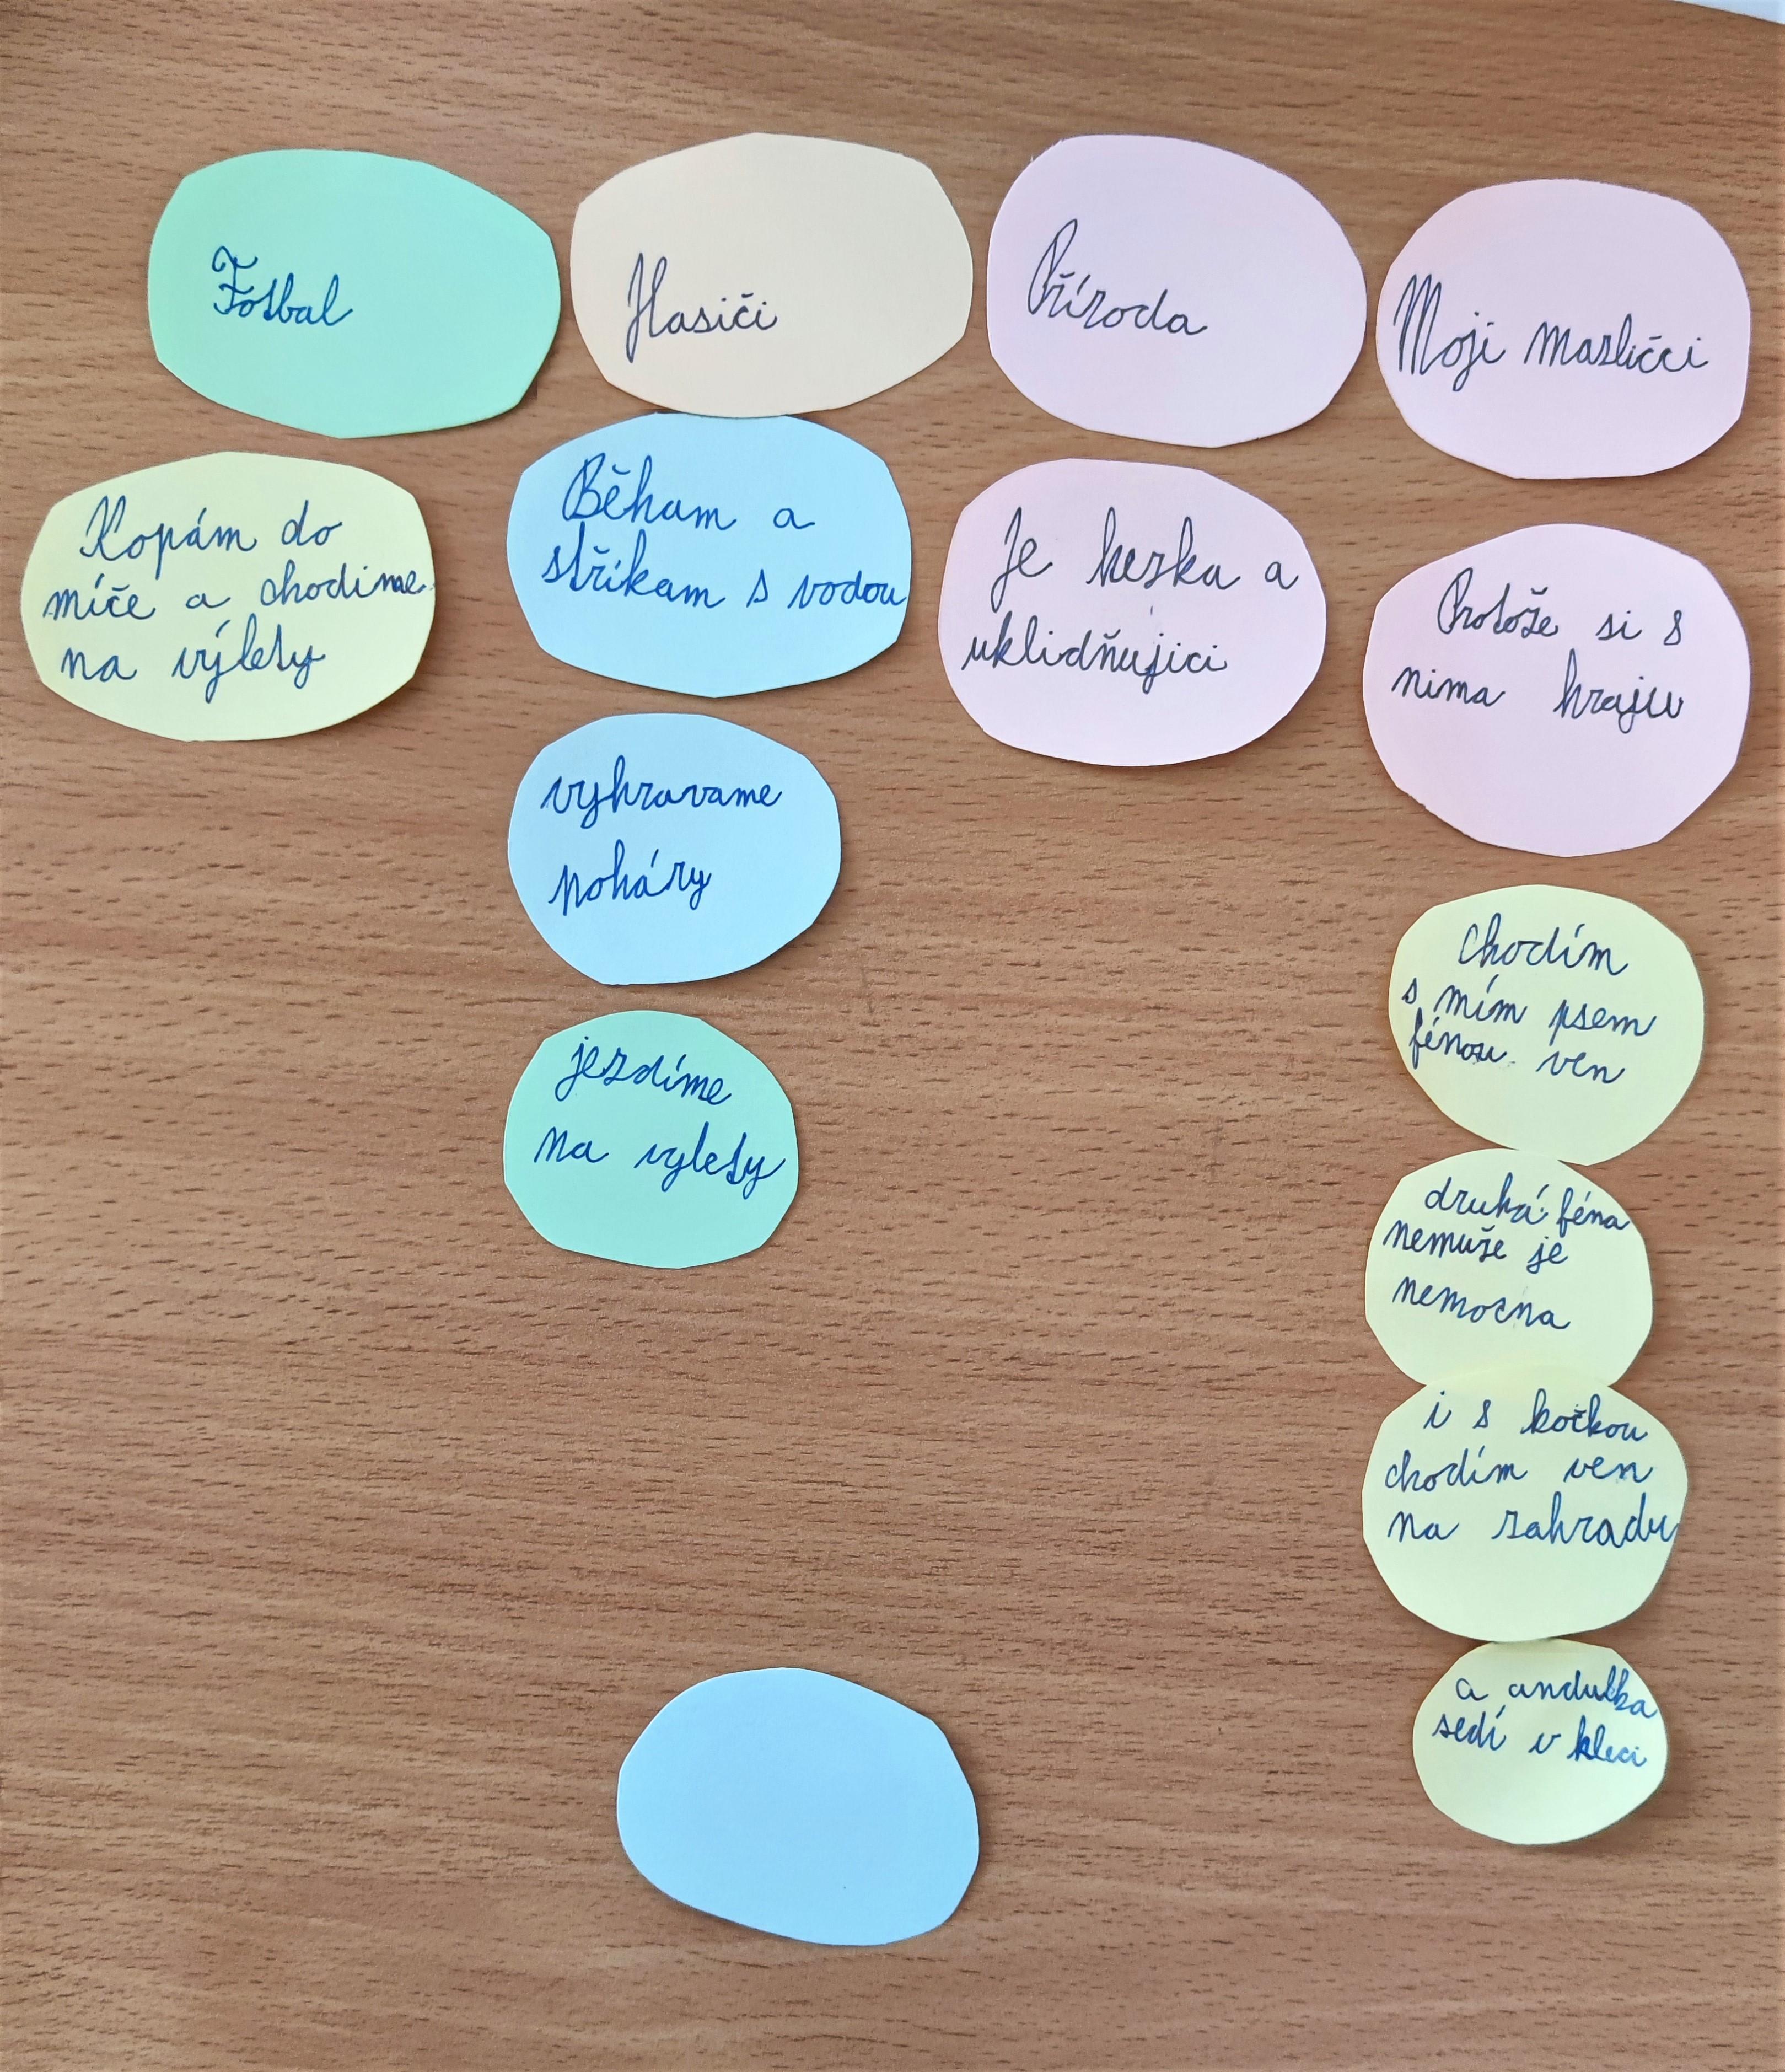 Fotbal
Kopám do
míče a chodíme
na výlety
Hasiči
Běham a
střikam s vodou
vyhravame
poháry
jezdíme
na vylety
Příroda
Je hezka a
uklidňujici
Moji mazličci
Protože si s
nima hraju
chodím
s mím psem
fénou ven
druhá féna
nemuže je
nemocna
i s kočkou
chodím ven
na zahradu
a andulka
sedí v kleci